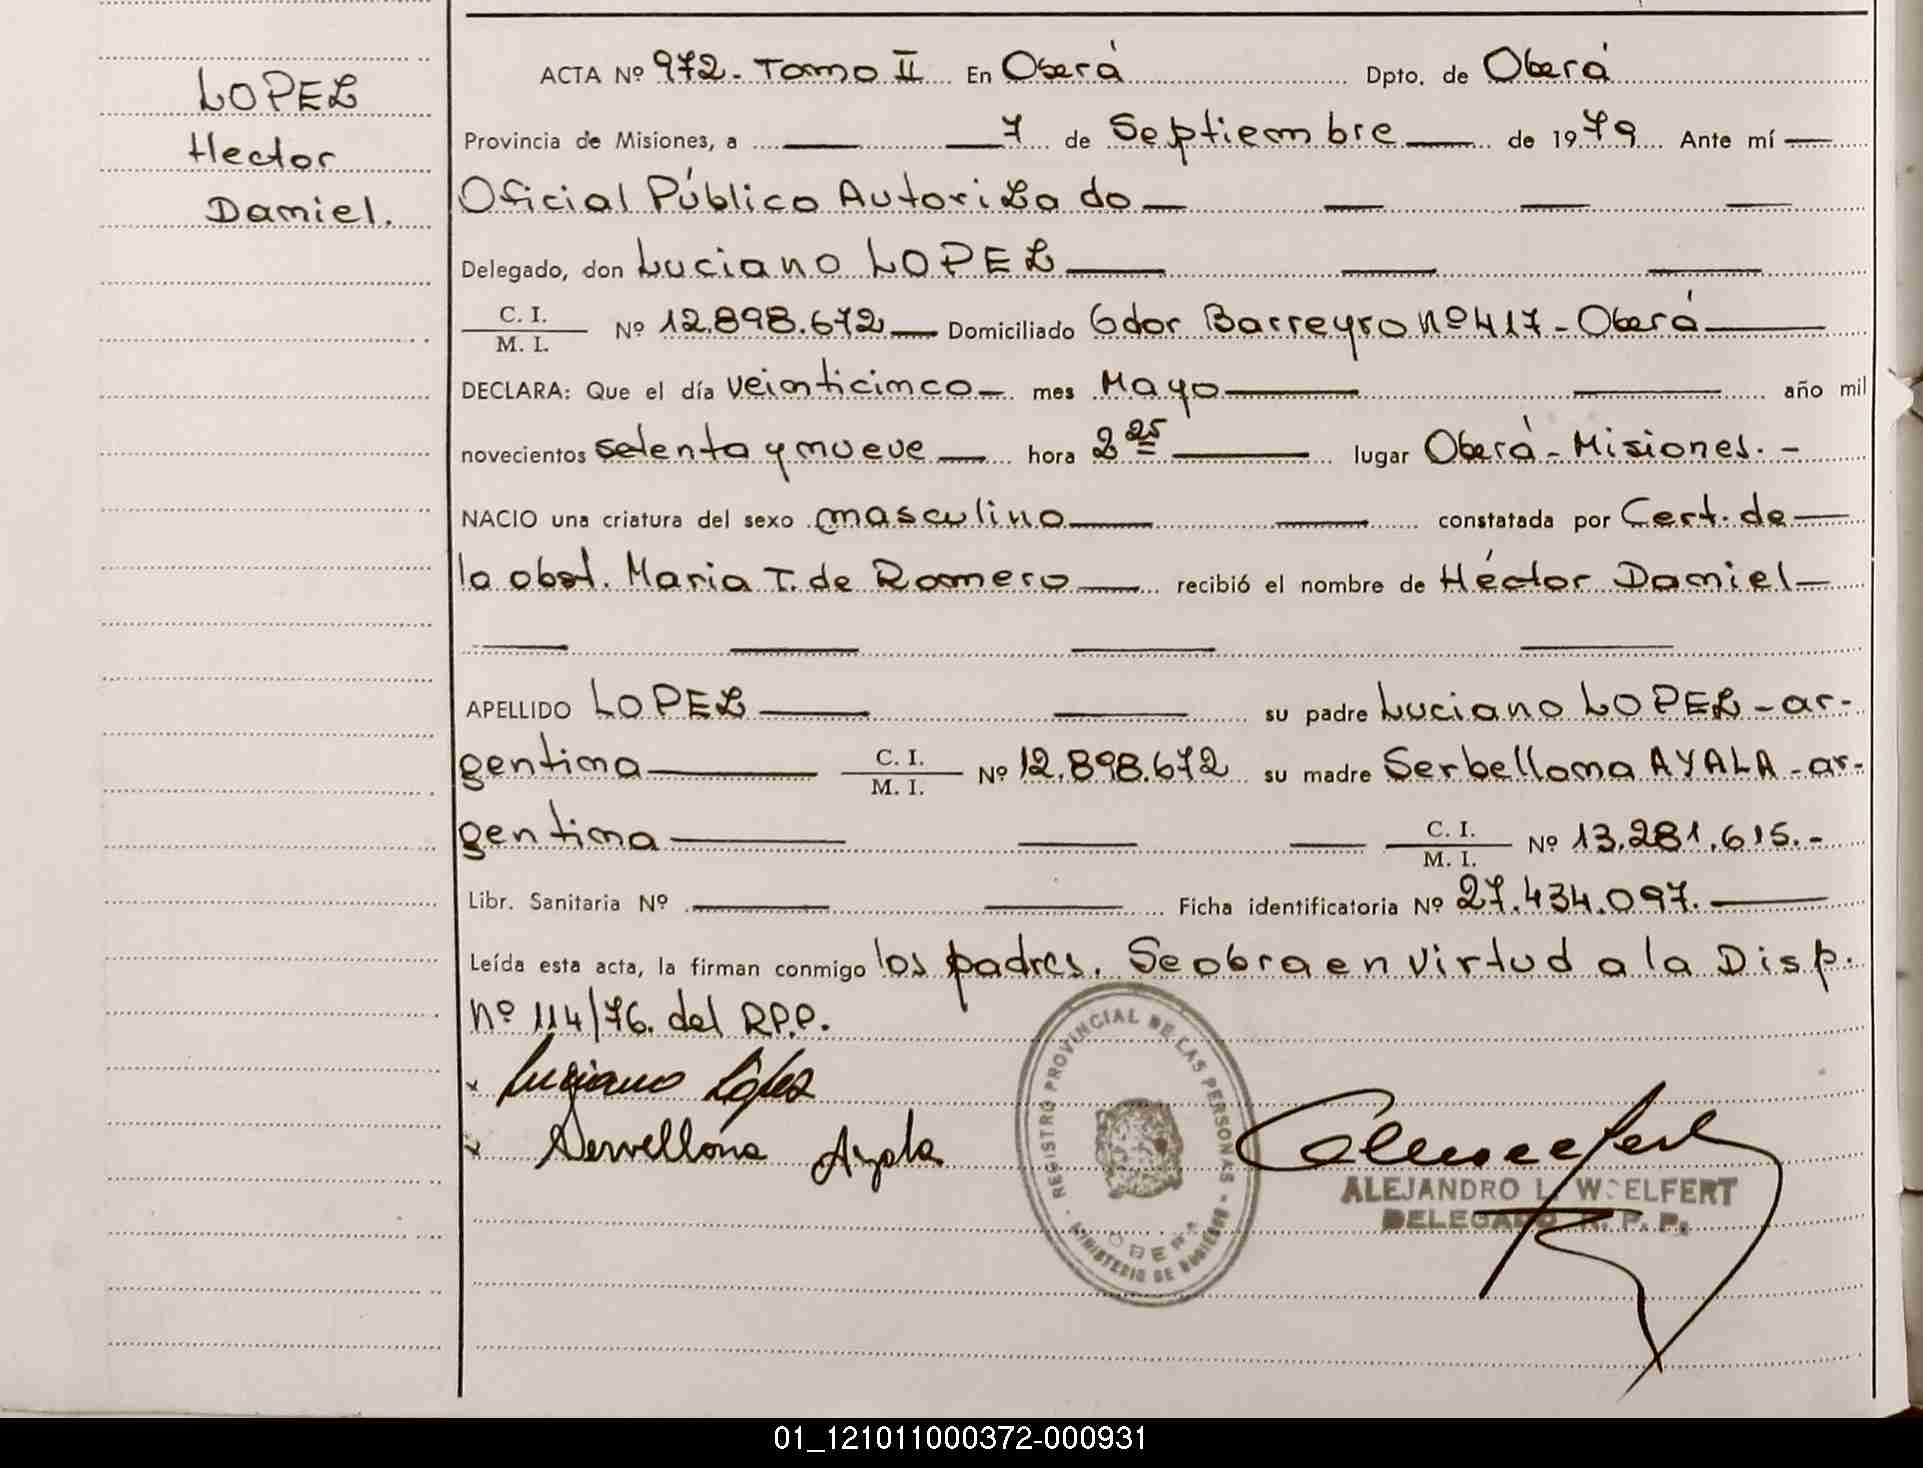 LOPEZ
Hector
Daniel.
ACTA Nº 972. Tomo II En Oberá Dpto. de Oberá
Provincia de Misiones, a 7 de Septiembre de 1979 Ante mí
Oficial Público Autorizado
Delegado, don Luciano LOPEZ
C. I.
M. I.
Nº 12.898.672 Domiciliado Gdor Barreyro nº 417 - Oberá
DECLARA: Que el día veinticinco mes Mayo año mil
novecientos setenta y nueve hora 2 25 lugar Oberá - Misiones. -
NACIO una criatura del sexo masculino constatada por Cert. de
la obst. Maria T. de Romero recibió el nombre de Héctor Daniel
APELLIDO LOPEZ su padre Luciano LOPEZ - ar-
gentina C. I. M. I. Nº 12.898.672 su madre Serbellona AYALA - ar-
gentina C. I. M. I. Nº 13.281.615. -
Libr. Sanitaria Nº Ficha identificatoria Nº 27.434.097.
Leída esta acta, la firman conmigo los padres. Se obra en virtud a la Disp.
nº 114/76. del R.P.P.
x Luciano López
x Servellona Ayala
REGISTRO PROVINCIAL DE LAS PERSONAS
OBERA
MINISTERIO DE GOBIERNO
ALEJANDRO L. WOELFERT
DELEGADO R. P. P.
01_121011000372-000931